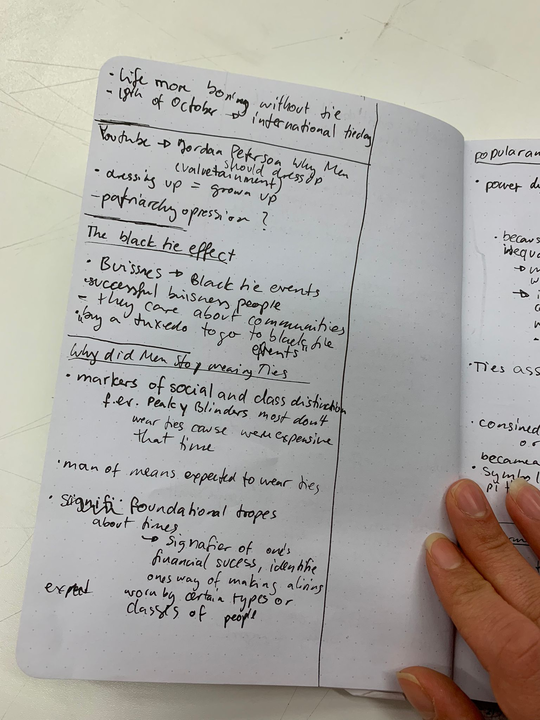 • Life more boring without tie
- 18th of October → international tieday
Youtube → Jordan Peterson Why Men
should dress up
(valuetainment)
• dressing up = grown up
- patriarchy opression ?
The black tie effect
• Buissnes → Black tie events
• successful buisness people
- they care about communities
• buy a tuxedo to go to black tie
events
Why did Men Stop wearing Ties
• markers of social and class distinction
f.ex. Peaky Blinders most don't
wear ties cause were expensive
that time
• man of means expected to wear ties
• foundational tropes
about times
→ signafier of one's
financial sucess, identifie
ones way of making a living
worn by certain types or
classes of people
popular
• power
• becaus
inequ
• Ties ass
• consined
or
became
• Symbol